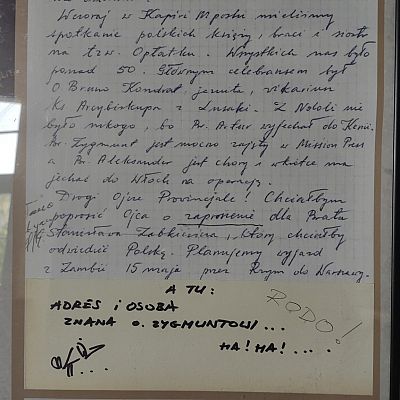 Wczoraj w Kapiri Mposhi mieliśmy
spotkanie polskich księży, braci i sióstr
na tzw. Opłatku. Wszystkich nas było
ponad 50. Głównym celebransem był
O. Bruno Kondrat, jezuita, wikariusz
Ks Arcybiskupa z Lusaki. Z Ndoli nie
było nikogo, bo Br. Artur wyjechał do Kenii.
Br. Zygmunt jest mocno zajęty w Mission Press
a Br. Aleksander jest chory i wkrótce ma
jechać do Włoch na operację.
Drogi Ojcze Prowincjale! Chciałbym
poprosić Ojca o zaproszenie dla Brata
Stanisława, który chciałby
odwiedzić Polskę. Planujemy wyjazd
z Zambii 15 maja przez Rzym do Warszawy.
A TU:
ADRES i OSOBA
ZNANA O. ZYGMUNTOWI...
HA! HA!....
RODO!